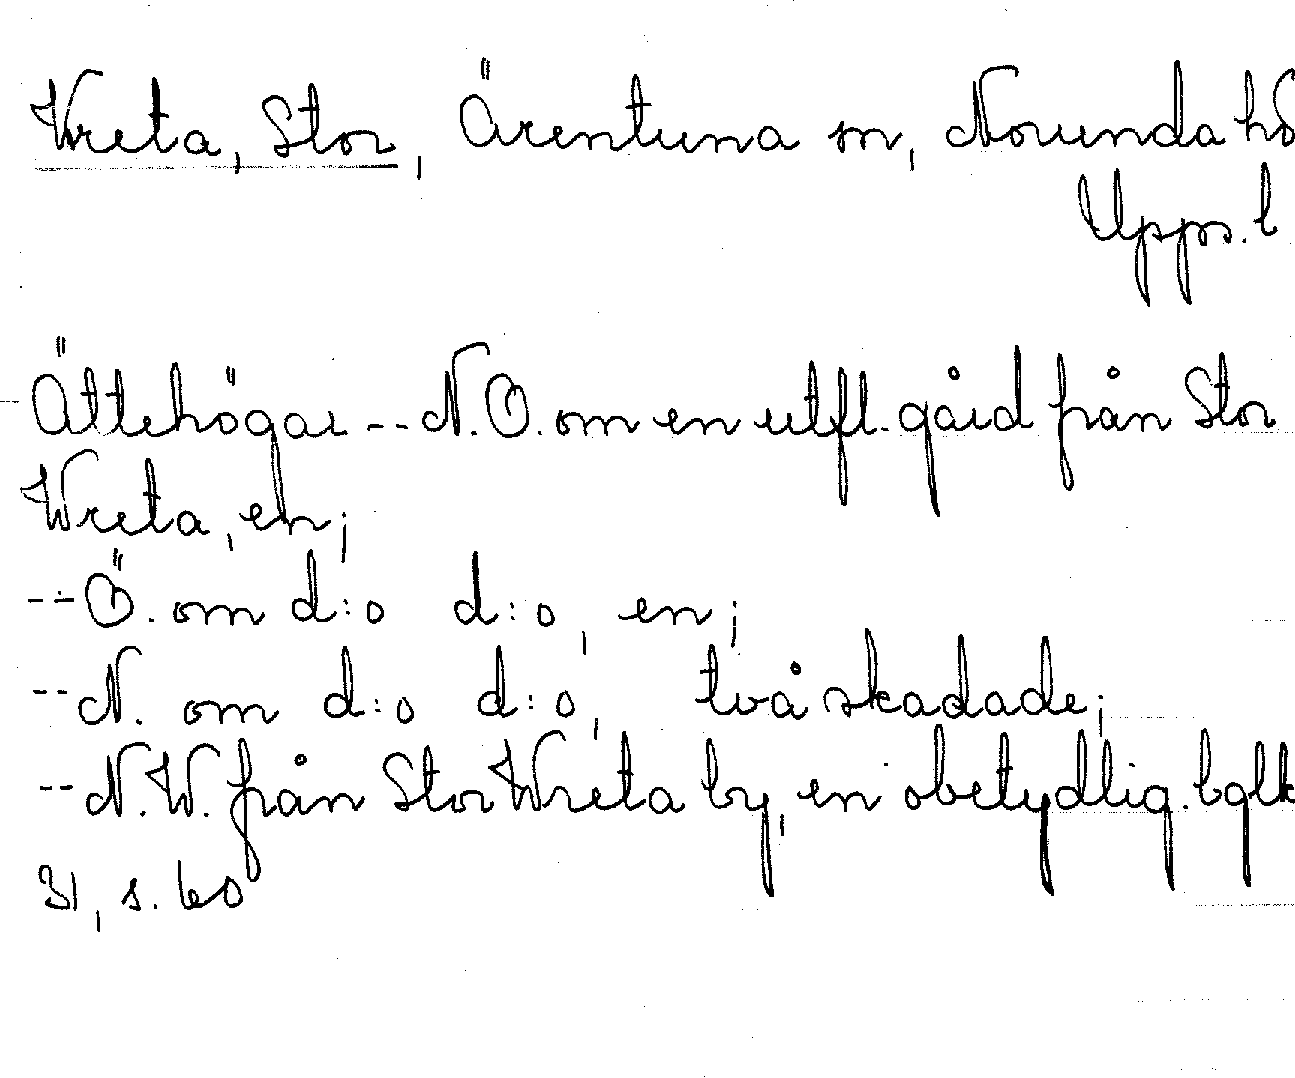 Wreta, Stor, Ärentuna sn, Norunda hd
Upps. l
Ättehögar -- N.O. om en utfl. gård från Stor
Wreta, en;
-- Ö. om d:o d:o, en;
-- N. om d:o d:o, två skadade;
-- N.W. från Stor Wreta by, en obetydlig. bglk
31, s. 60